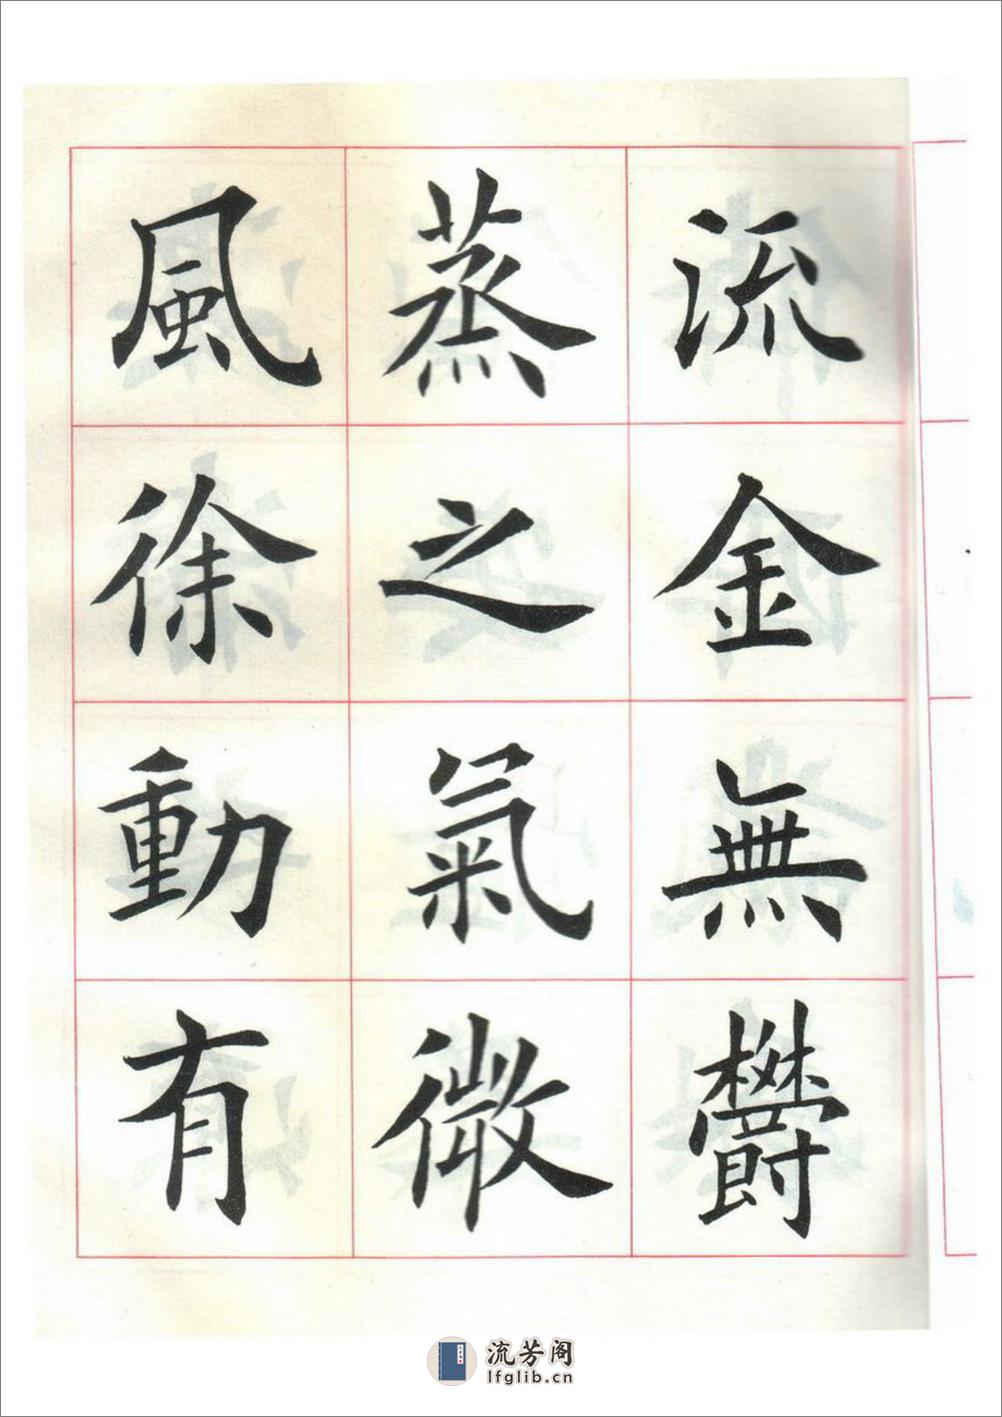 流金無欝
蒸之氣微
風徐動有
流芳阁
lfglib.cn